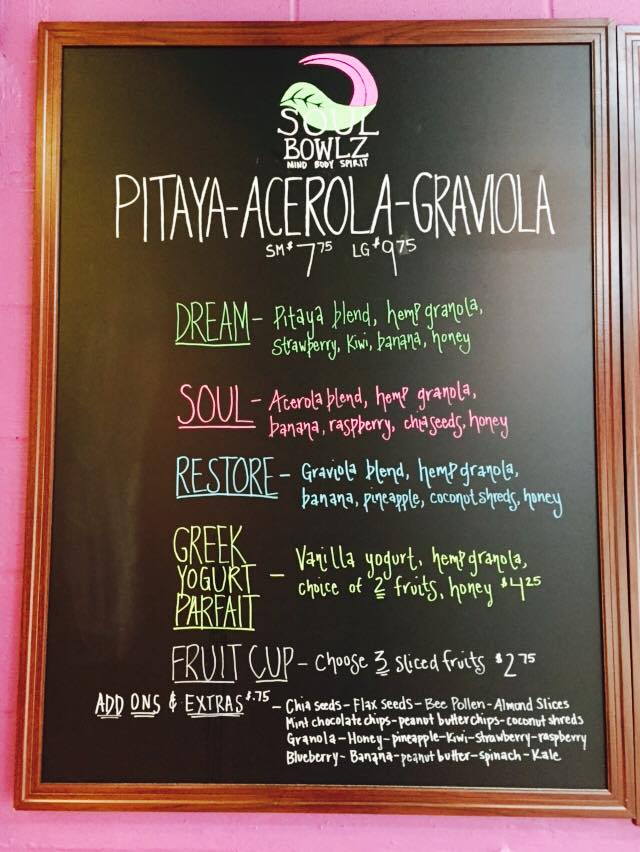 SOUL
BOWLZ
MIND BODY SPIRIT
PITAYA-ACEROLA-GRAVIOLA
SM $7.75 LG $9.75
DREAM - Pitaya blend, hemp granola,
strawberry, kiwi, banana, honey
SOUL - Acerola blend, hemp granola,
banana, raspberry, chia seeds, honey
RESTORE - Graviola blend, hemp granola,
banana, pineapple, coconut shreds, honey
GREEK
YOGURT
PARFAIT - Vanilla yogurt, hemp granola,
choice of 2 fruits, honey $4.25
FRUIT CUP - Choose 3 sliced fruits $2.75
ADD ONS & EXTRAS $.75 - Chia seeds - Flax seeds - Bee Pollen - Almond Slices
Mint chocolate chips - peanut butter chips - coconut shreds
Granola - Honey - pineapple - kiwi - strawberry - raspberry
Blueberry - Banana - peanut butter - spinach - Kale